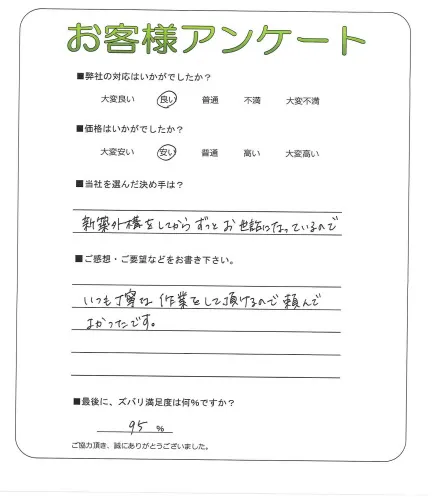 お客様アンケート
■弊社の対応はいかがでしたか？
大変良い 良い 普通 不満 大変不満
■価格はいかがでしたか？
大変安い 安い 普通 高い 大変高い
■当社を選んだ決め手は？
新築外構をしてからずっとお世話になっているので
■ご感想・ご要望などをお書き下さい。
いつも丁寧な作業をして頂けるので頼んで
よかったです。
■最後に、ズバリ満足度は何％ですか？
95 %
ご協力頂き、誠にありがとうございました。